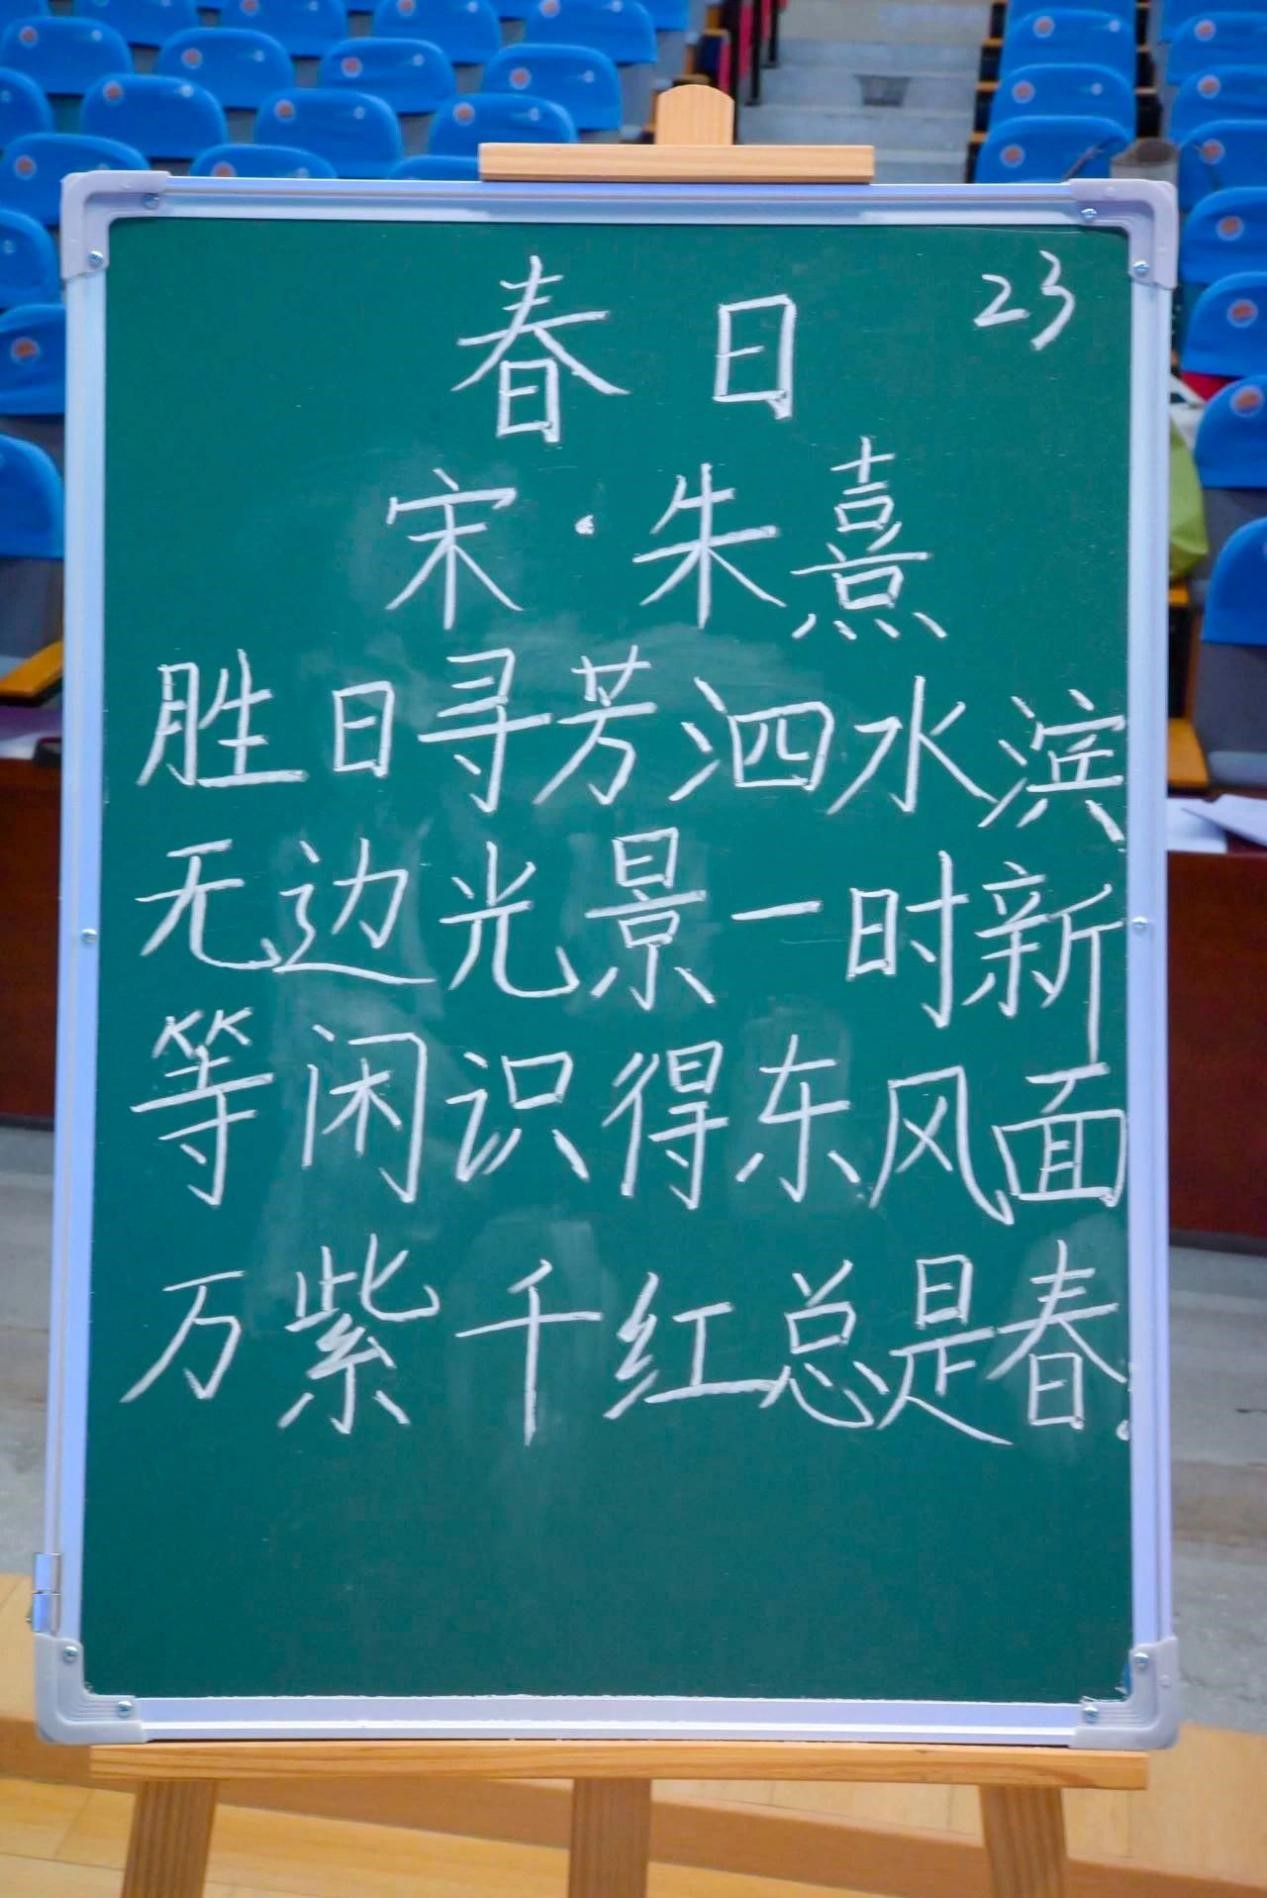 春日 23
宋·朱熹
胜日寻芳泗水滨
无边光景一时新
等闲识得东风面
万紫千红总是春.